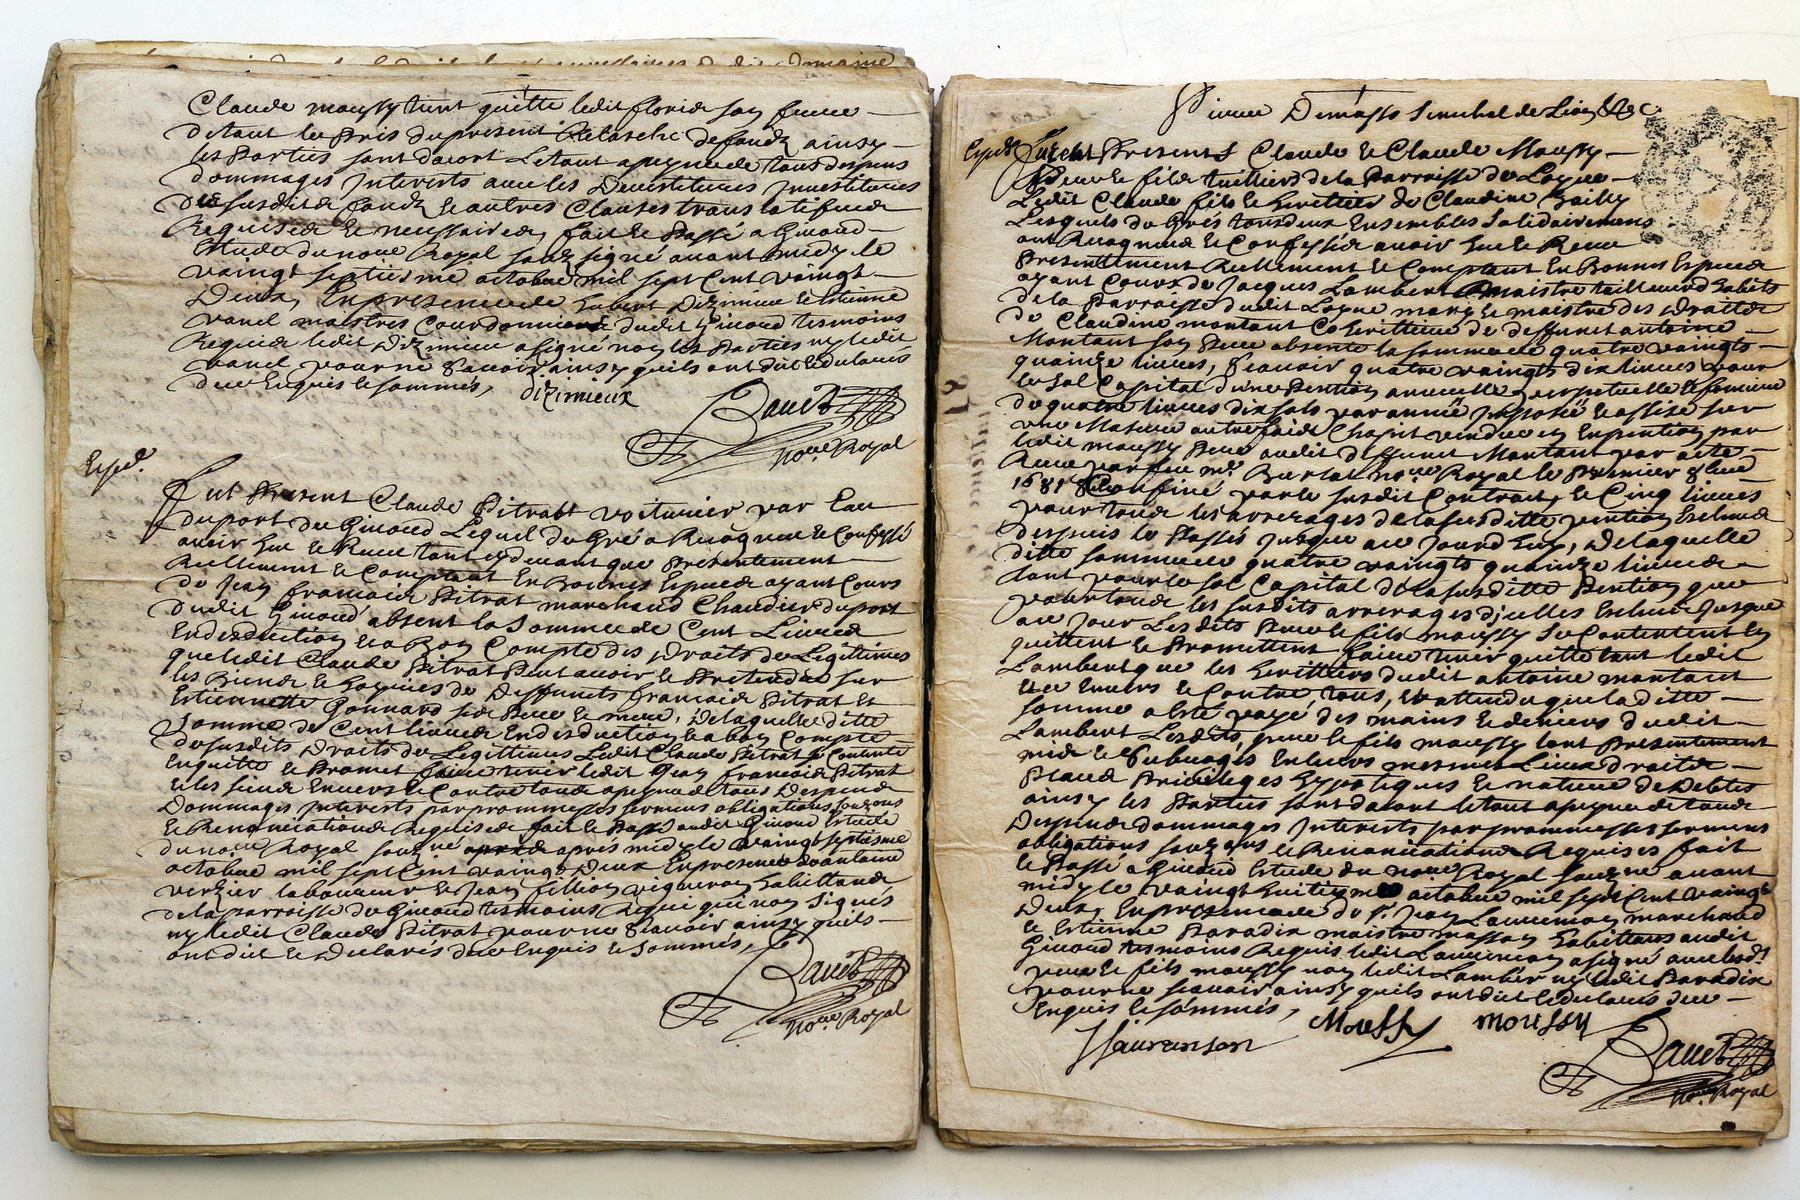 Claude moussy tient quitte ledit floris son frere
detout le Pris dupresent Relasche defondz ainsy
les Parties sont dacort Letout apeyne de tous despens
dommages Interests avec les Devestitures Investitures
De susdits fondz et autres Clauses translatifves
Requises et necessaires, fait et Passé a Givord
Estude du nore Royal soubzsigné avant midy le
vaingt septiesme octobre mil sept Cent vaingt
Deux, En presence de hubert Dizimieux et Estienne
vanel maistres Courdonniers dudit Givord tesmoins
Requis ledit Dizimieux a signé non les Parties ny ledit
vanel pour ne scavoir ainsy quils ont dit et declarés
de ce Enquis et sommés,
dizimieux
Bauet
nore Royal
Exped.
Fut Present Claude Pitrat voiturier par Eau
du port de Givord Lequel de Gré a Recogneu et Confessé
avoir heu et Receu tant cydevant que Presentement
Reellement et Comptant En Bonnes Especes ayant Cours
de Jean francois Pitrat marchand Chaudier du port
dudit Givord absent la Somme de Cent Livres
En desduction et a Bon Compte des Droits de Legitimes
que ledit Claude Pitrat Peut avoir et Pretendre sur
les Biens et hoiries de Deffunts francois Pitrat et
Estiennette Gonnard ses Pere et mere, De laquelle ditte
Somme de Cent livres En desduction et a bon Compte
de susdits Droits de Legittimes Ledit Claude Pitrat se Contente
Enquitte et Promet faire tenir ledit Jean francois Pitrat
et les siens Envers et Contre tous apeyne de tous Despens
Dommages Interests par prommesses sermens obligations soubzons
et Renonciations Requises fait et Passé audit Givord Estude
du nore Royal soubzne après midy le vaingt septiesme
octobre mil sept Cent vaingt Deux En presence dantoine
verzier laboureur et Jean fillion vigneron habittants
de la parroisse de Givord tesmoins Requi qui non signés
ny ledit Claude Pitrat pour ne scavoir ainsy quils
ont dit et declarés de ce Enquis et sommés,
Bauet
nore Royal
Pierre Demasso Senechal de Lion &c
Exped.
Furent Presents Claude et Claude Moussy
Pere et fils tuilliers de la Parroisse de Loyre
Ledit Claude fils et heritier de Claudine Bailly
Lesquels de Grés tous deux Ensembles Solidairement
ont Recogneus et Confessés avoir heu et Receu
Presentement Reellement et Comptant En Bonnes Especes
ayant Cours de Jacques Lambert maistre tailleur d habits
de la Parroisse dudit Loyre mary et maistre des droits
de Claudine montant Coheritiere de deffunct antoine
Montant son Pere absente la somme de quatre vaingts
quinze livres, Scavoir quatre vaingts dix livres pour
le sol Capital d'une Pention annuelle perpetuelle et fonciere
de quatre livres dix sols par année Imposée et assise sur
une Masure autrefois Chapit vendue en Enpention par
ledit moussy Pere audit deffunct Montant par acte
Receu par feu me Burlat nore Royal le Premier
1681 Confiné par le susdit Contract, et Cinq livres
pour tous les arrerages de la susditte pention Escheus
despuis le Passés Jusque au Jourdhuy, De laquelle
ditte somme de quatre vaingts quinze livres
tant pour le sol Capital de la susditte Pention que
pour tous les susdits arrerages d'icelles Escheus Jusque
au Jour Lesdits Pere et fils moussy se Contentent En
quittent et Promettent faire tenir quitte tant ledit
Lambert que les heritiers dudit antoine montant
et ce Envers et Contre tous, Et attendu que laditte
somme a Esté payé des mains et deniers dudit
Lambert Lesdits, pere et fils moussy lont Presentement
mis et Subrogés En leurs mesmes Lieux droits
Places Privileges hypotéques et nature de Debtes
ainsy les Parties sont dacort letout apeyne de tous
Despens dommages Interests par prommesses sermens
obligations soubzons et Renonciations Requises fait
et Passé a Givord Estude du nore Royal soubzne avant
midy le vaingt huitiesme octobre mil sept Cent vaingt
Deux, En presence de Sr. Jean Laurenson marchand
et Estienne Paradix maistre masson habittans audit
Givord tesmoins Requis ledit Laurenson a signé avec lesdt
pere et fils moussy non ledit Lambert ny ledit Paradix
pour ne scavoir ainsy quils ont dit et declarés de ce
Enquis et sommés,
Moussy
moussy
JLaurenson
Bauet
nore Royal